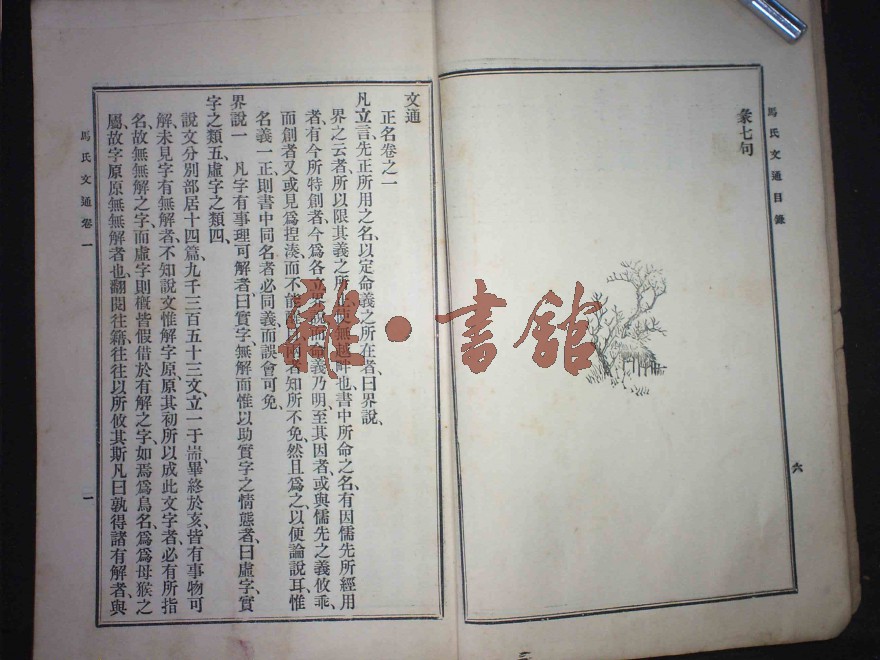 馬氏文通目錄
彖七句
六
文通
正名卷之一
凡立言、先正所用之名、以定命義之所在者、曰界說、
界之云者、所以限其義之所止、使無越畔也、書中所命之名、有因儒先所經用
者、有今所特創者、今爲各立界說、而命義乃明、至其因者、或與儒先之義攸乖、
而創者又或見爲揑湊、而不能兩者知所不免、然且爲之、以便論說耳、惟
名義一正、則書中同名者必同義、而誤會可免、
界說一　凡字有事理可解者、曰實字、無解而惟以助實字之情態者、曰虛字、實
字之類五、虛字之類四、
說文分別部居十四篇、九千三百五十三文、立一于耑、畢終於亥、皆有事物可
解、未見字有無解者、不知說文惟解字原、原其初所以成此文字者、必有所指
名、故無無解之字、而虛字則概皆假借於有解之字、如焉爲鳥名、爲爲母猴之
屬、故字原原無無解者也、翻閱往籍、往往以所攸其斯凡曰孰得諸有解者、與
馬氏文通卷一
一
雜·書館